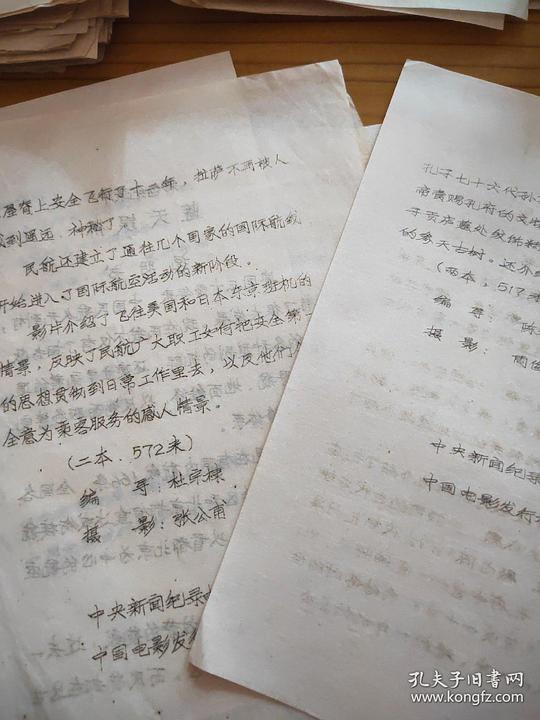 屋脊上安全飞行了十三年，拉萨不再被人
到遥远、神秘了
民航还建立了通往几个国家的国际航线
开始进入了国际航空活动的新阶段。
影片介绍了飞往美国和日本东京班机的
情景，反映了民航广大职工如何把安全第
的思想贯彻到日常工作里去，以及他们
全意为乘客服务的感人情景。
(二本、572米)
编 导：杜
摄 影：张公甫
中央新闻纪录
中国电影发
孔子七十六代孙
帝赏赐孔府的文
的参天古树。还介
(两本，517米
编 导：陈
摄 影：
中央新闻纪
中国电影发行
孔夫子旧书网
www.kongfz.com